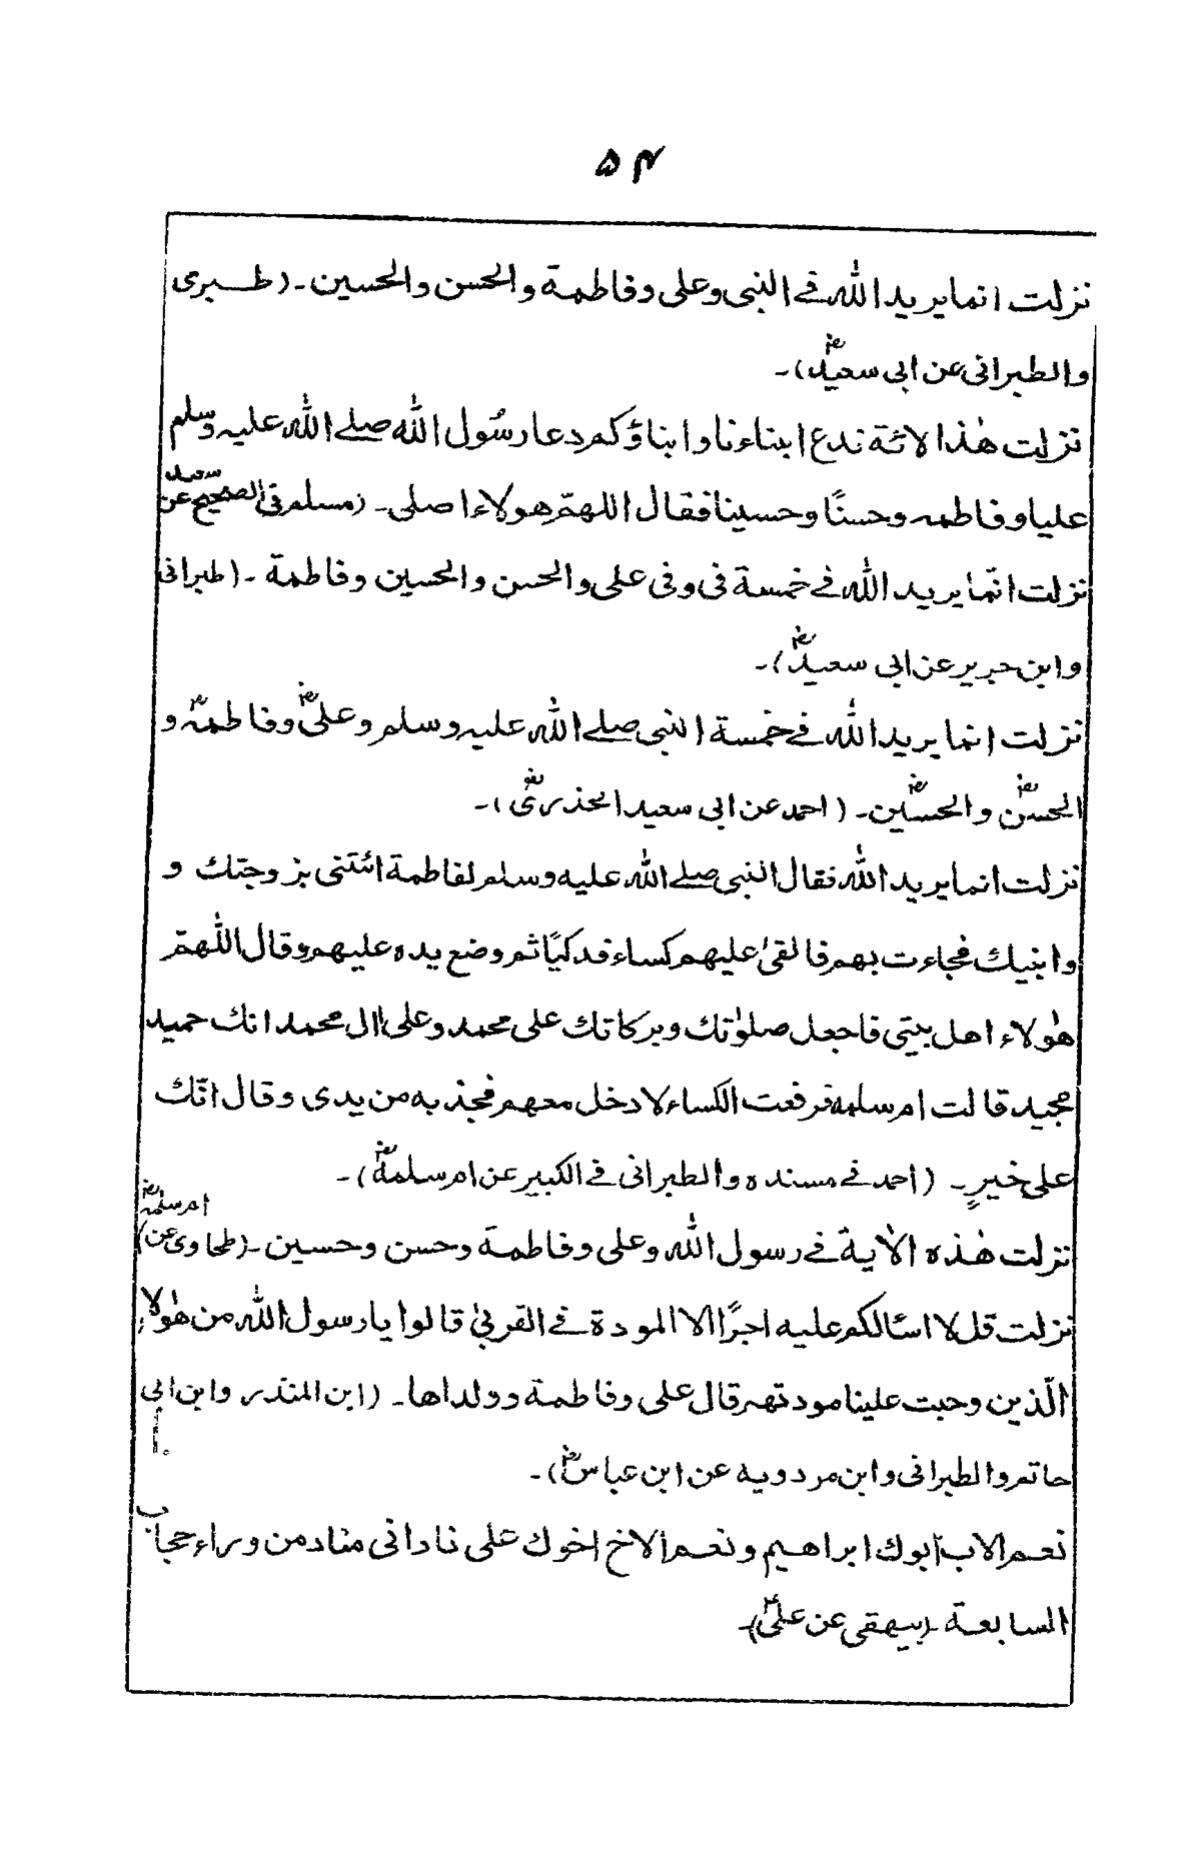 ۵۴
نزلت انما يريد الله فے النبی وعلی وفاطمة والحسن والحسين۔ (طبری
والطبرانی عن ابی سعیدؓ)۔
نزلت هٰذا لائة ندع ابناءنا وابناؤكم دعا رسُول الله صلے الله عليہ وسلم
عليا وفاطمہ وحسنًا وحسينا فقال اللهمّ هولاء اصلی۔ (مسلم فی الصحيح عن سعيد
نزلت انّما يريد الله فے خمسة فی وفی علی والحسن والحسين وفاطمة ۔ (طبرانی
وابن جرير عن ابی سعيدؓ)۔
نزلت انما يريد الله فے خمسة النبی صلے الله عليہ وسلم وعلیؓ وفاطمہؓ و
الحسنؓ والحسينؓ۔ (احمد عن ابی سعيد الخذریؓ)۔
نزلت انما يريد الله فقال النبی صلے الله عليه وسلم لفاطمة ائتنی بزوجتك و
وابنيك فجاءت بهم فالقیٰ عليهم كساء فدكيًا ثم وضع يده عليهم وقال اللّٰهمّ
هٰولاء اهل بيتی فاجعل صلوٰتك وبركاتك علی محمد وعلی اال محمد انك حميد
مجيد قالت ام سلمه فرفعت الكساء لادخل معهم فجذبه من يدی وقال انّك
علی خيرٍ۔ (احمد فے مسنده والطبرانی فے الكبير عن ام سلمةؓ)۔
نزلت هٰذه الاٰية فے رسول الله وعلی وفاطمة وحسن وحسين ۔ (طحاوی عن ام سلمہؓ)
نزلت قل لا اسالكم عليه اجرًا الا المودة فے القربیٰ قالوا يا رسول الله من هٰولاءِ
الّذين وجبت علينا مودتهم قال علی وفاطمة وولداها۔ (ابن المنذر وابن ابی
حاتم والطبرانی وابن مردويه عن ابن عباسؓ)۔
نعم الاب ابوك ابراهيم ونعم الاخ اخوك علی نادانی مناد من وراء حجاب
السابعة ۔ (بيهقی عن علیؓ)۔